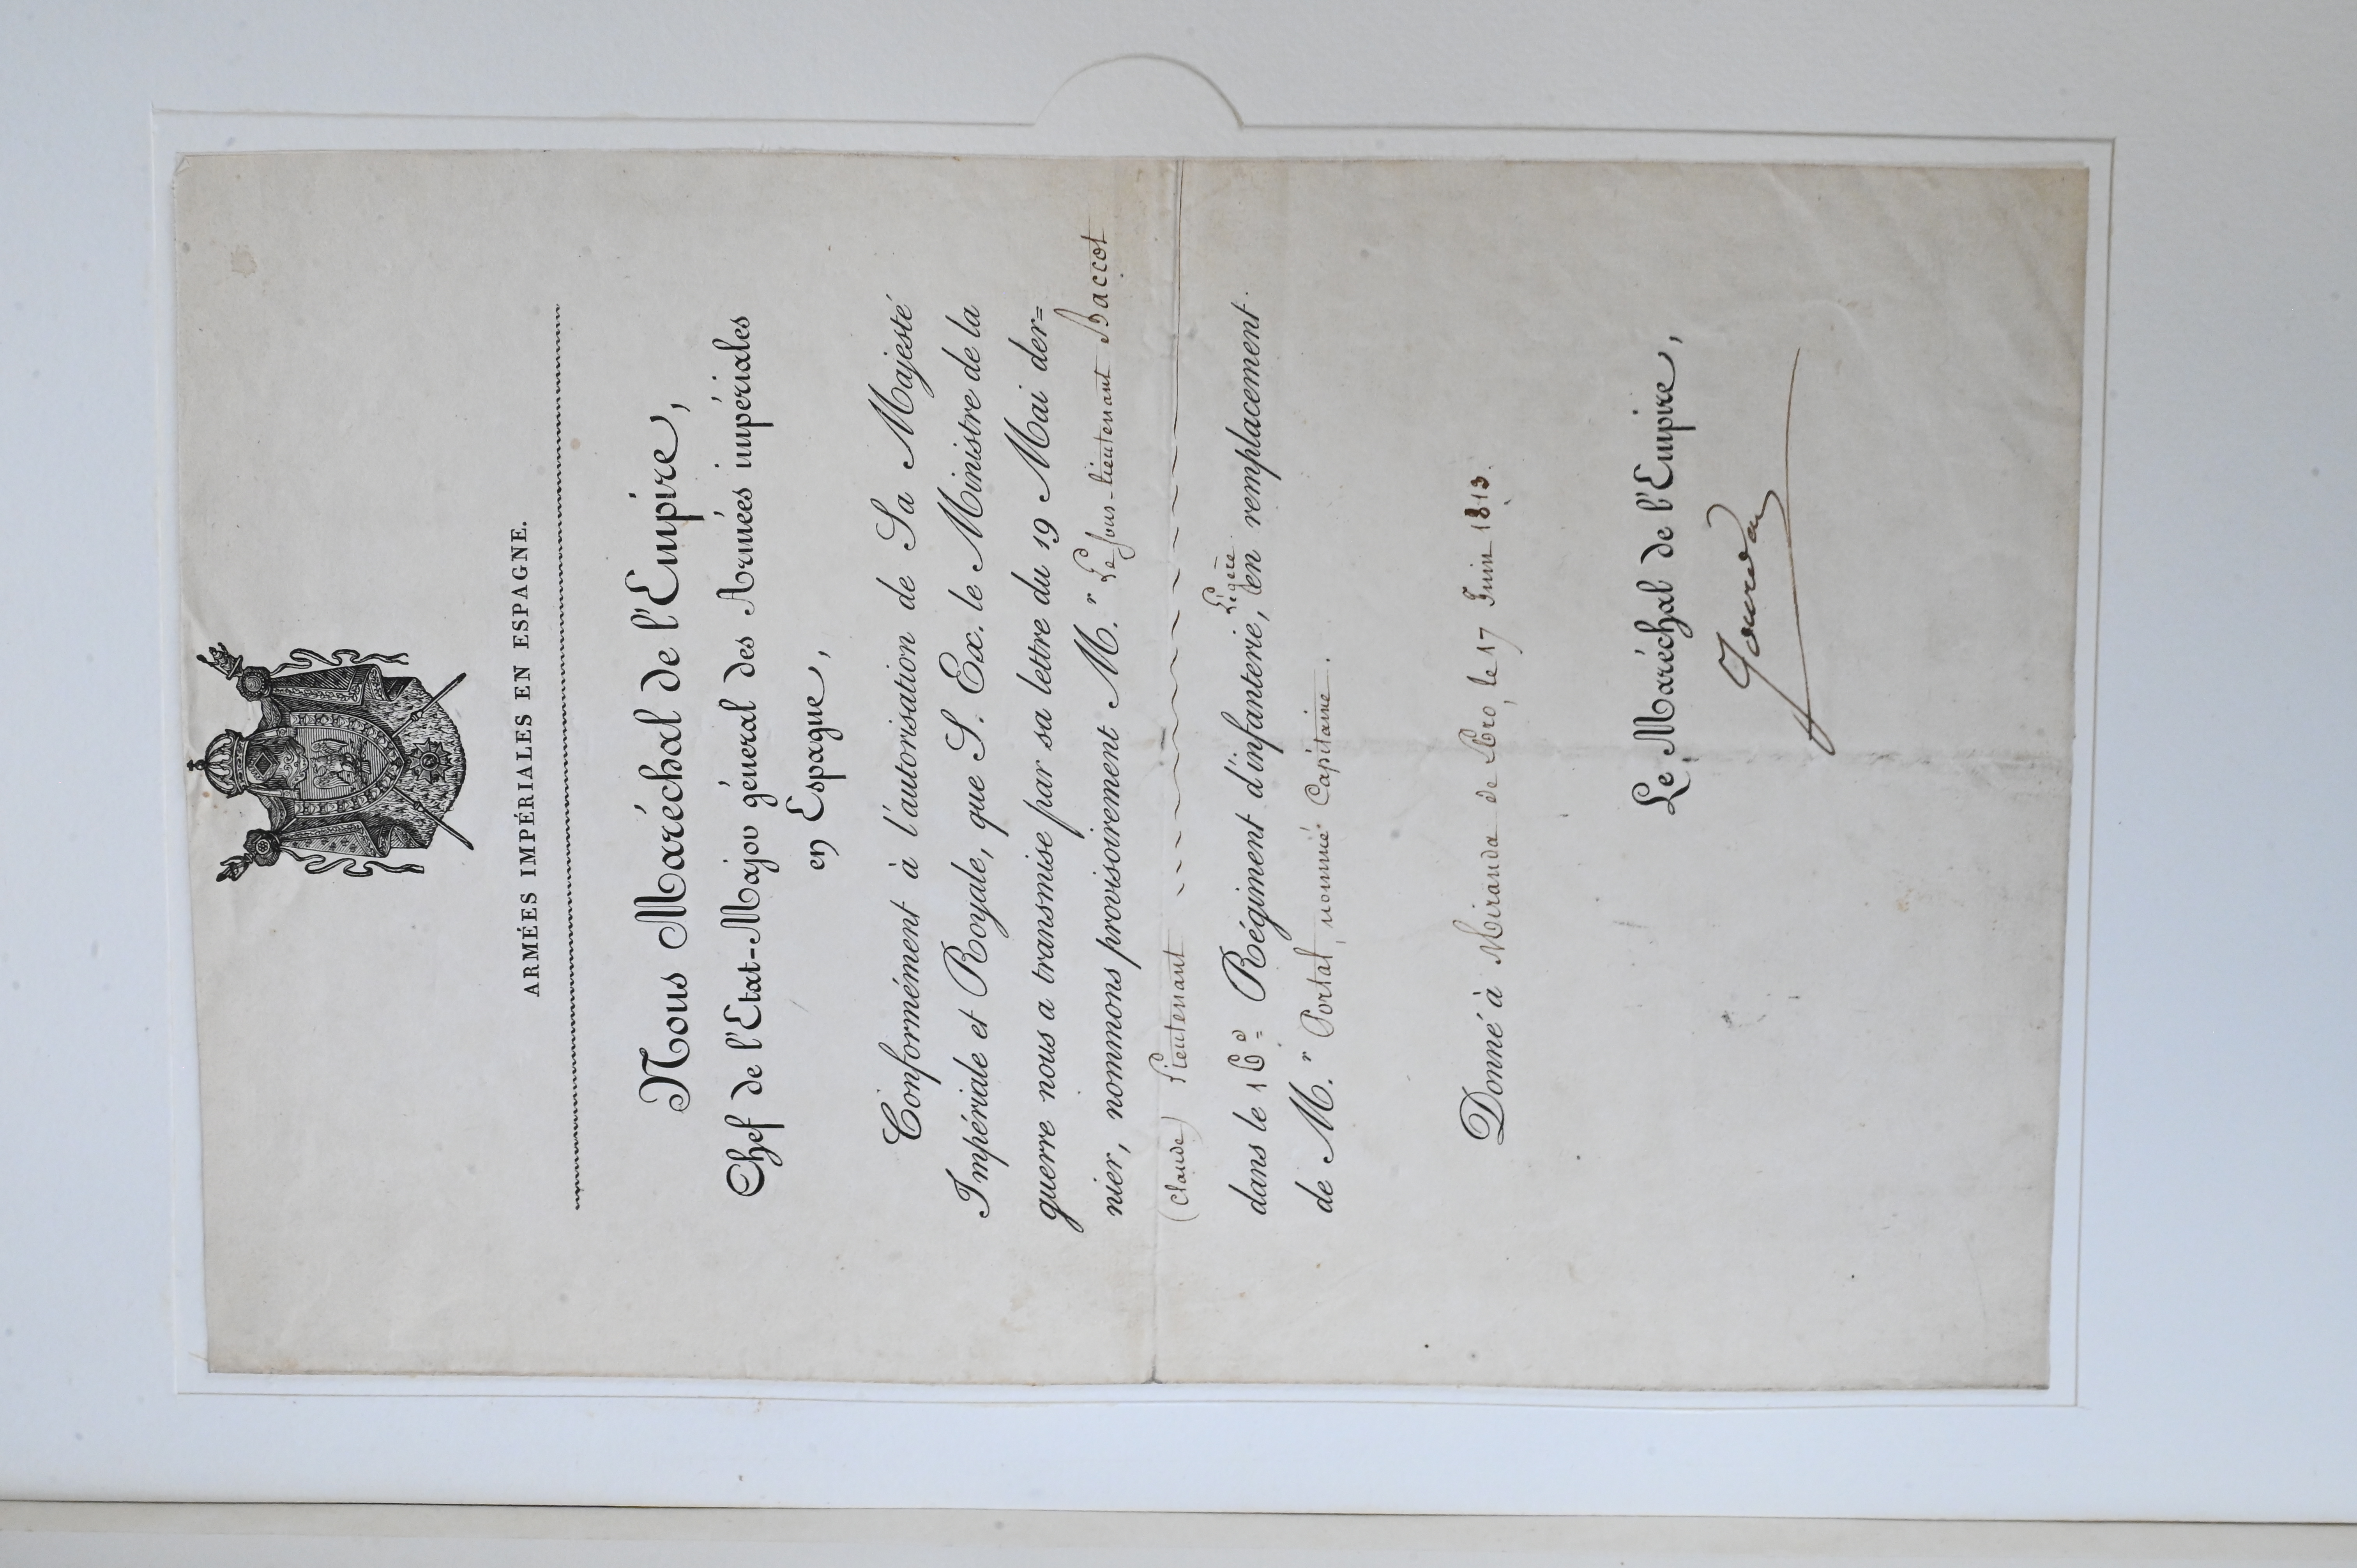 ARMÉES IMPÉRIALES EN ESPAGNE.
Nous Maréchal de l'Empire,
Chef de l'Etat-Major général des Armées impériales
en Espagne,
Conformément à l'autorisation de Sa Majesté
Impériale et Royale, que S. Ex. le Ministre de la
guerre nous a transmise par sa lettre du 19 Mai der=
nier, nommons provisoirement M.r Le Sous-lieutenant Baccot
(Claude) Lieutenant
Légère
dans le 16e Régiment d'infanterie, en remplacement
de M.r Portal, nommé Capitaine.
Donné à Miranda de Ebro, le 17 Juin 1813.
Le Maréchal de l'Empire,
Jourdan